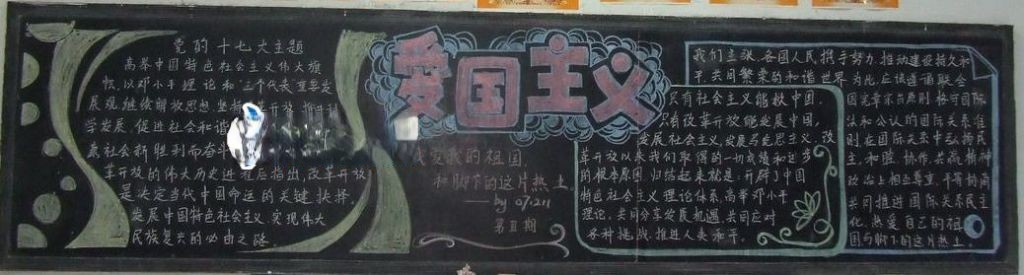 党的十七大主题
高举中国特色社会主义伟大旗
帜,以邓小平理论和"三个代表"重要
发展观,继续解放思想,坚持改革开放,推
学发展,促进社会和谐
社会新胜利而奋斗
革开放的伟大历史进程后指出,改革开放
是决定当代中国命运的关键抉择
发展中国特色社会主义,实现伟大
民族复兴的必由之路
爱国主义
我爱我的祖国,
和脚下的这片热土.
——by 07.211
第Ⅱ期
只有社会主义能救中国,
只有改革开放能发展中国,
发展社会主义,发展马克思主义,改
革开放以来我们取得的一切成绩和进步
的根本原因,归结起来就是:开辟了中国
特色社会主义理论体系,高举邓小平
理论,共同分享发展机遇,共同应对
各种挑战,推进人类和平.
我们主张,各国人民携手努力,推动建设持久和
平,共同繁荣的和谐世界.为此,应该遵循联合
国宪章宗旨原则,恪守国际
法和公认的国际关系准
则,在国际关系中弘扬民
主,和睦,协作,共赢精神
政治上相互尊重,平等协商
共同推进国际关系民主
化,热爱自己的祖
国与脚下的这片热土.